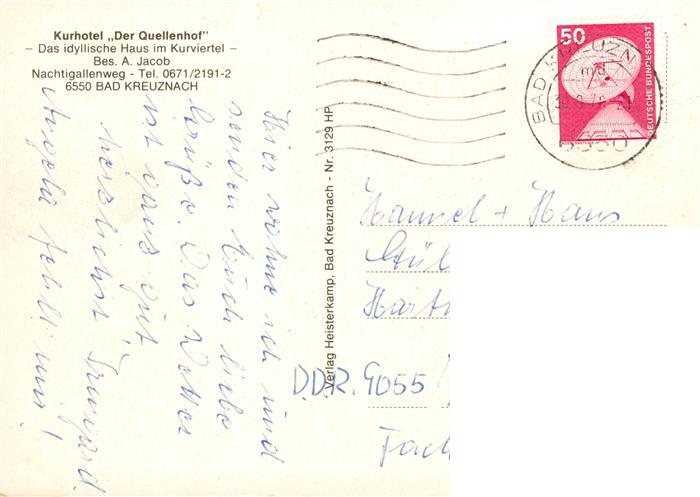 Kurhotel „Der Quellenhof"
– Das idyllische Haus im Kurviertel –
Bes. A. Jacob
Nachtigallenweg - Tel. 0671/2191-2
6550 BAD KREUZNACH
Hier wohne ich und
senden Euch liebe
Grüße. Das Wetter
ist ganz gut.
Herzlichst Irmgard.
Angela fehlt mir!
Verlag Heisterkamp, Bad Kreuznach - Nr. 3129 HP
50
DEUTSCHE BUNDESPOST
BAD KREUZN
Hannel + Hans
Hart
D.D.R. 9055
Fach